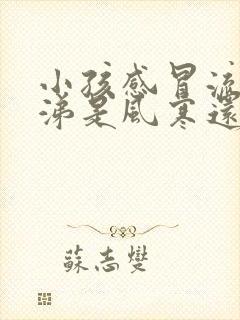 小孩感冒流
涕是風寒還
蘇志燮